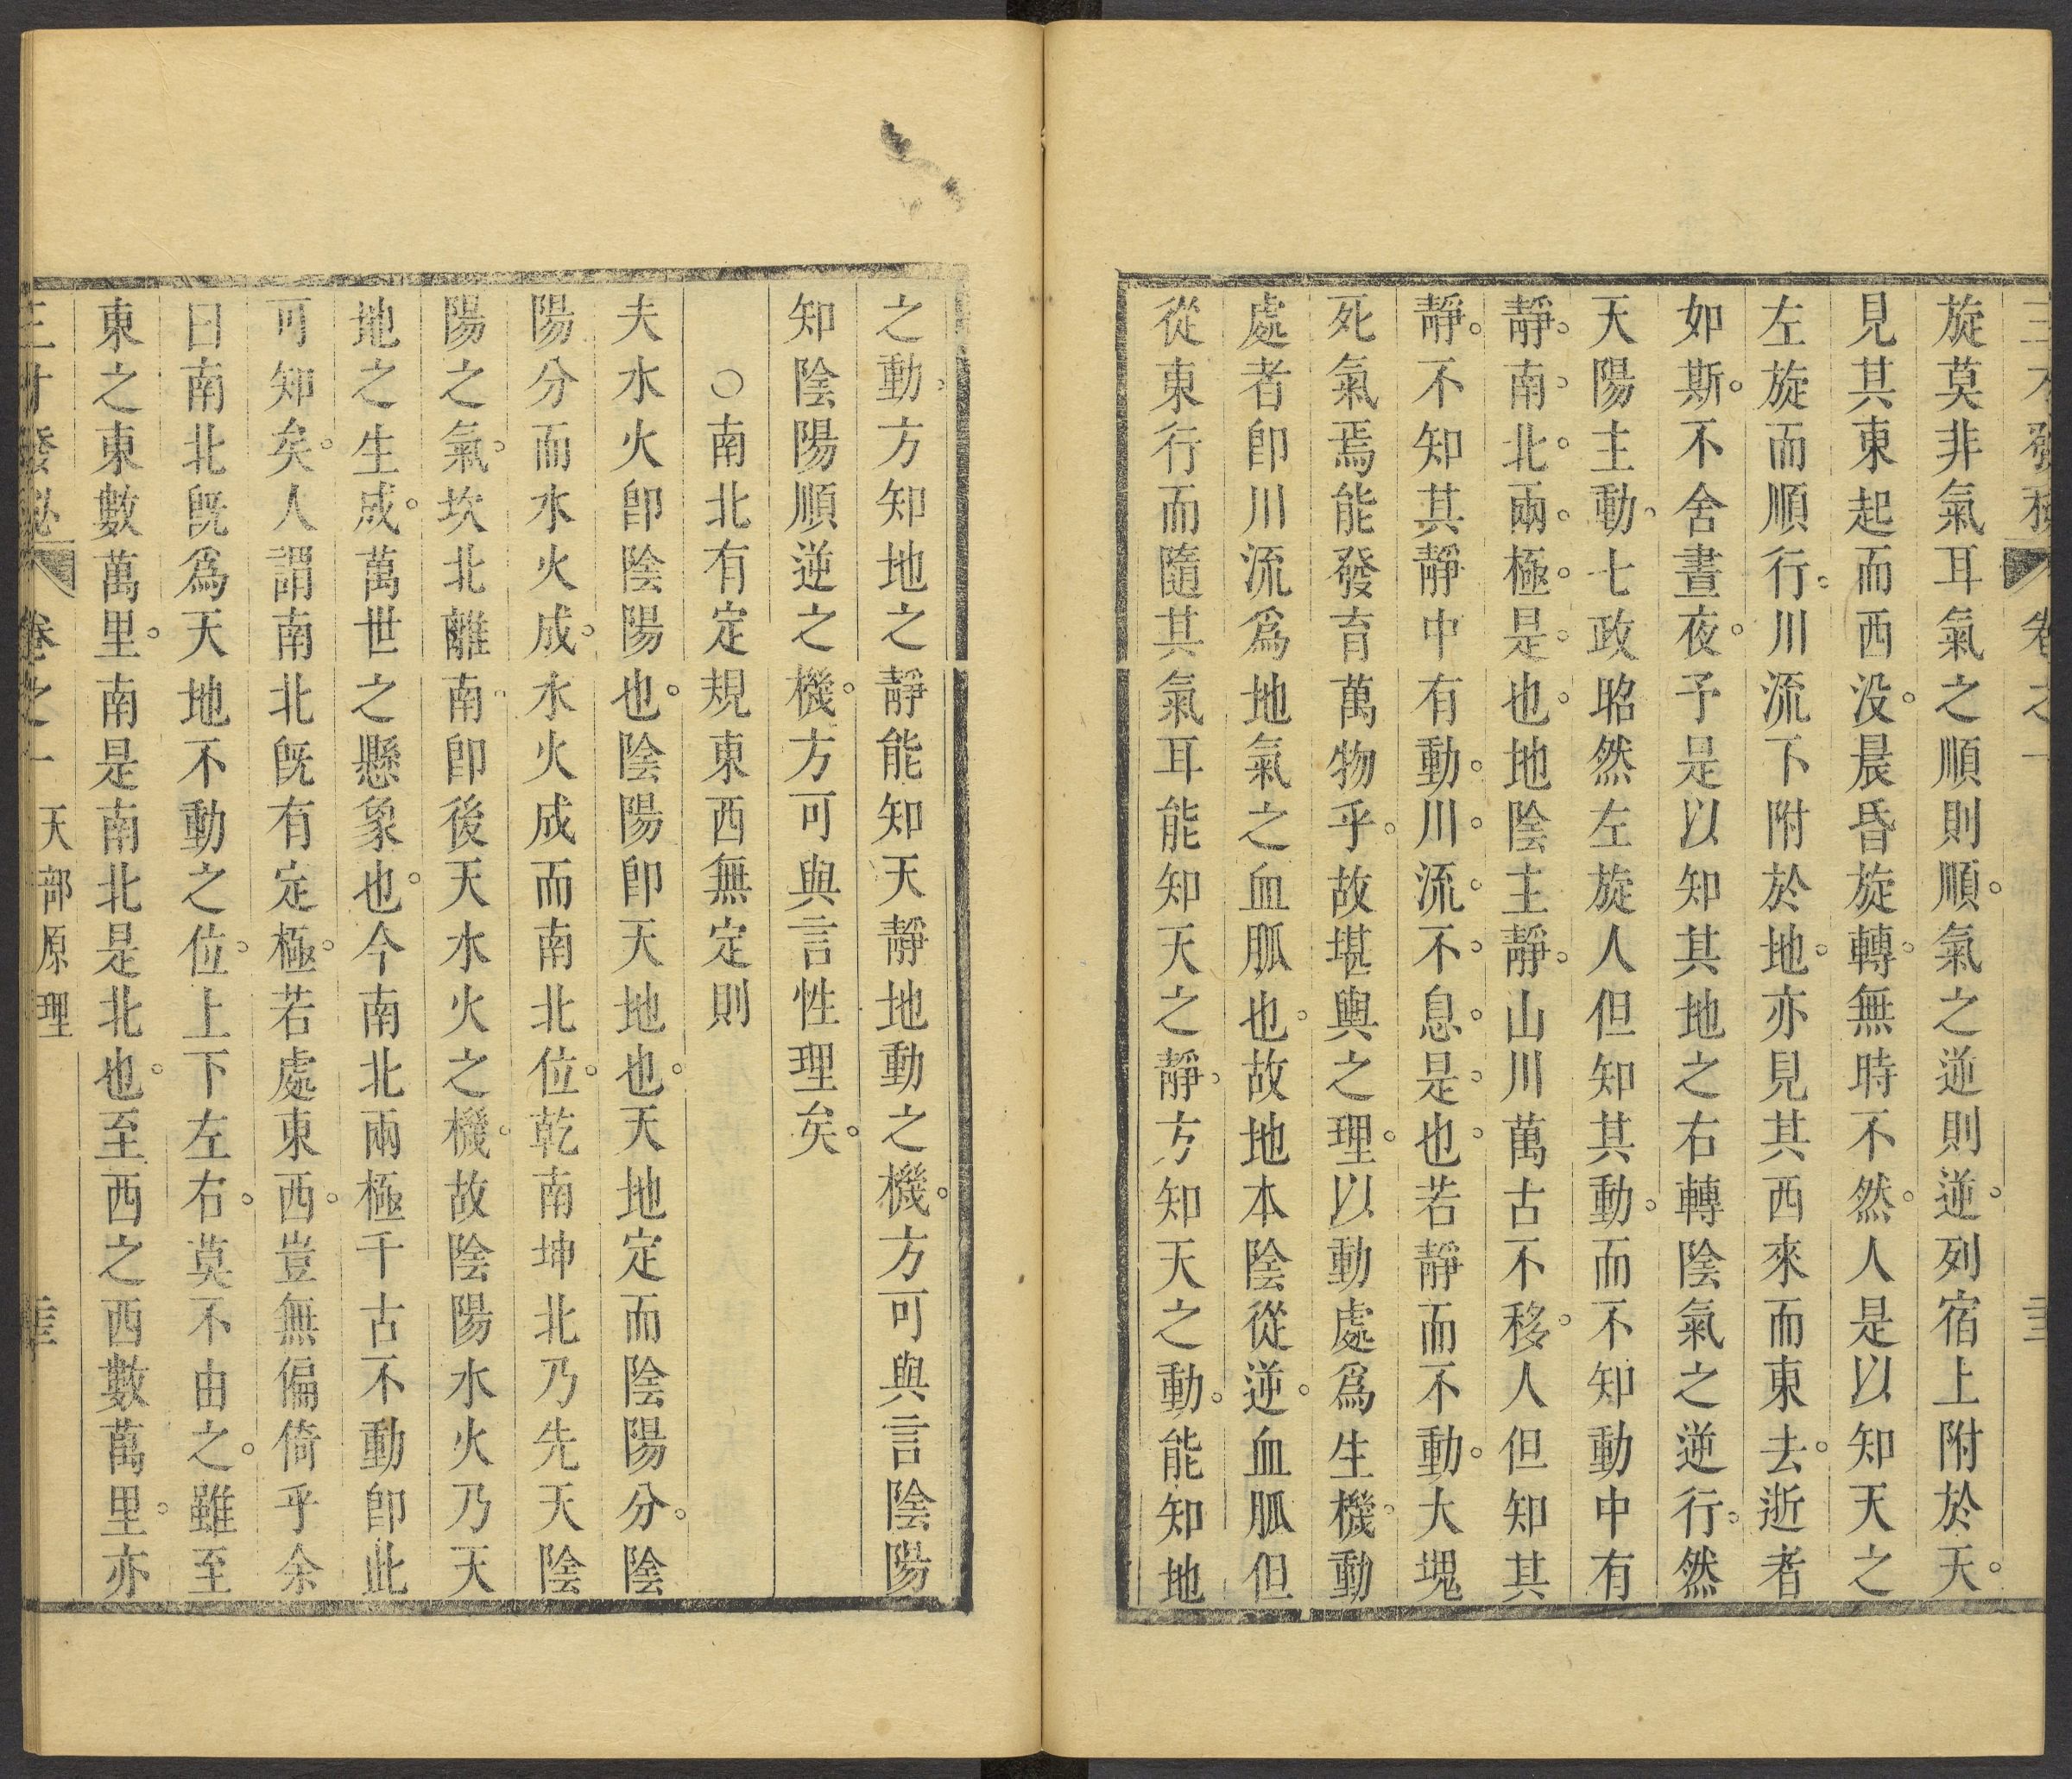 旋莫非氣耳氣之順則順。氣之逆則逆。列宿上附於天。
見其東起而西没。晨昏旋轉。無時不然。人是以知天之
左旋而順行。川流下附於地。亦見其西來而東去。逝者
如斯。不舍晝夜。予是以知其地之右轉陰氣之逆行。然
天陽主動。七政昭然左旋人但知其動。而不知動中有
靜。南。北。兩。極。是。也。地陰主靜。山川萬古不移。人但知其
靜。不知其靜中有動。川。流。不。息。是。也。若靜而不動。大塊
死氣焉能發育萬物乎。故堪輿之理。以動處爲生機。動
處者卽川流爲地氣之血脈也。故地本陰從逆。血脈但
從東行而隨其氣耳能知天之靜。方知天之動。能知地
之動。方知地之靜能知天靜地動之機。方可與言陰陽
知陰陽順逆之機。方可與言性理矣。
○南北有定規東西無定則
夫水火卽陰陽也。陰陽卽天地也。天地定而陰陽分。陰
陽分而水火成。水火成而南北位。乾南坤北乃先天陰
陽之氣。坎北離南。卽後天水火之機。故陰陽水火乃天
地之生成。萬世之懸象也。今南北兩極千古不動卽此
可知矣。人謂南北既有定極。若處東西。豈無偏倚乎余
曰南北既爲天地不動之位。上下左右。莫不由之。雖至
東之東數萬里。南是南北是北也。至西之西數萬里。亦
三才發秘 卷之一 天部原理